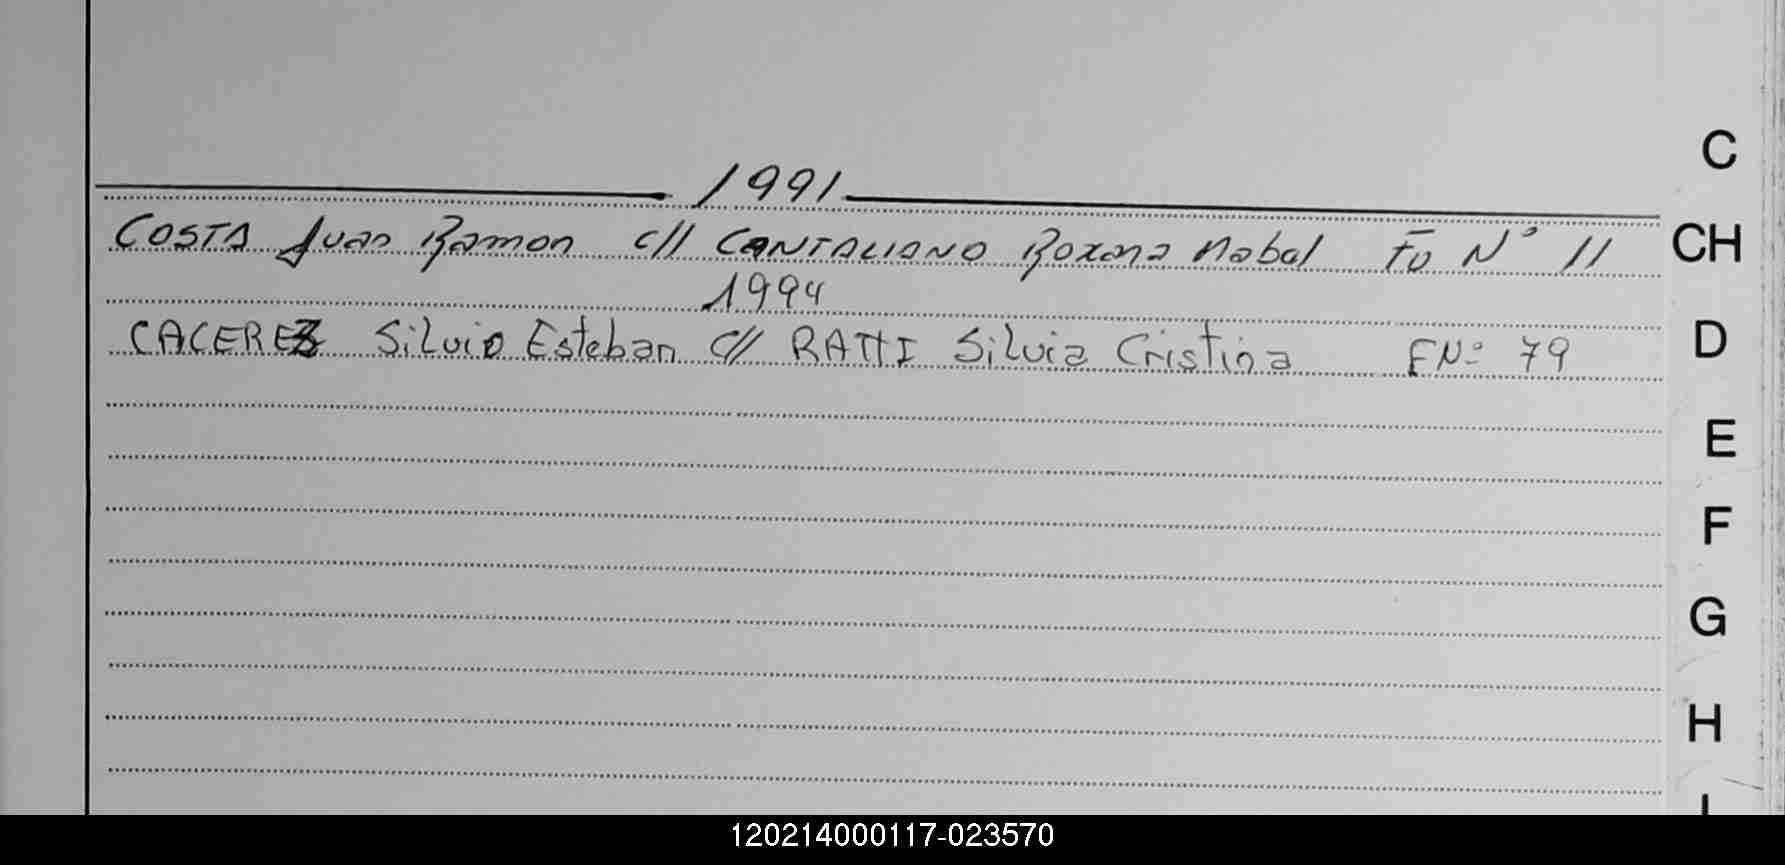 1991
COSTA Juan Ramon c// CANTALIANO Roxana Mabel Fo N° 11
1994
CACERES Silvio Esteban c// RATTI Silvia Cristina FNº 79
C
CH
D
E
F
G
H
I
120214000117-023570